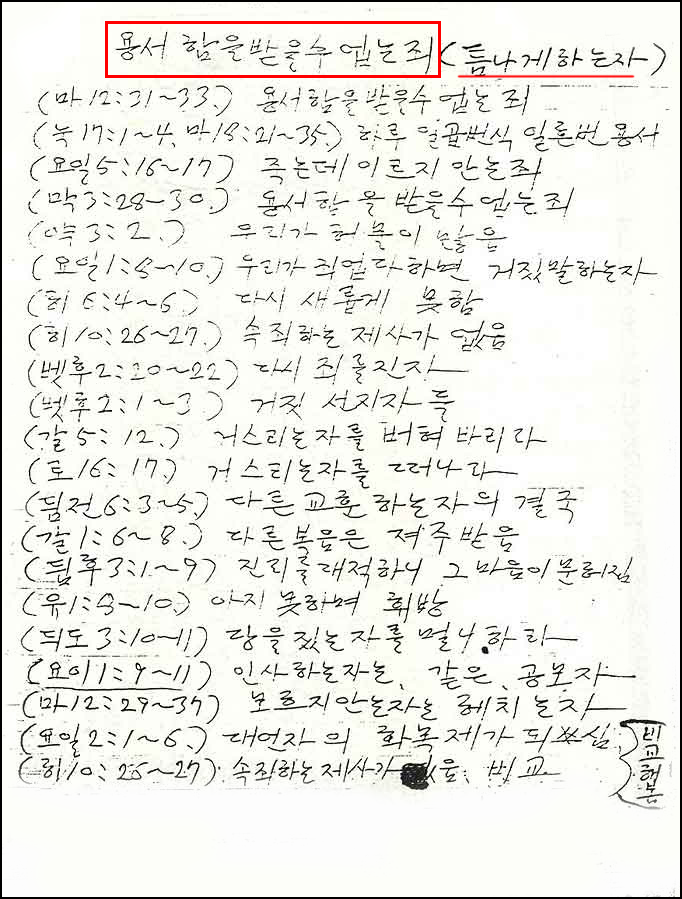 용서 함을받을수 업는 죄 (틈나게하는자)
(마 12:31~33.) 용서함을 받을수 업는 죄
(눅 17:1~4, 마 18:21~35.) 하루 일곱번식 일흔번 용서
(요일 5:16~17) 죽는데 이르지 안는죄
(막 3:28-30.) 용서함을 받을수 업는죄
(약 3:2.) 우리가 허물이 많음
(요일 1:8-10.) 우리가 죄업다하면 거짓말하는자
(히 6:4~6.) 다시 새롭게 못함
(히 10:26~27.) 속죄하는 제사가 없음
(벳후 2:20~22) 다시 죄를진자
(벳후 2:1~3) 거짓 선지자들
(갈 5:12.) 거스리는자를 버혀 바리라
(로 16:17.) 거스리는자를 떠나라
(딤전 6:3~5.) 다른 교훈하는자의 결국
(갈 1:6~8.) 다른복음은 져주받음
(딤후 3:1~9) 진리를대적하니 그마음이 부패
(유 1:8~10.) 아지 못하며 훼방
(듸도 3:10~11) 당을짓는자를 멀니.하라
(요이 1:9~11) 인사하는자는, 같은, 공모자
(마 12:29~37) 모흐지안는자는 헤치는자
(요일 2:1~6.) 대언자의 화목제가 되쓰심
(히 10:26~27) 속죄하는제사가 음, 비교
비교해봄